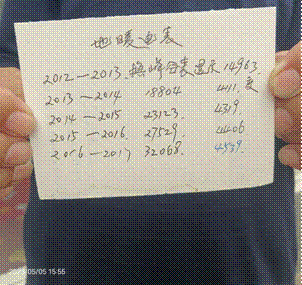 地暖电表
2012—2013.换峰谷表显示14963.
2013—2014 18804 411.度
2014—2015 23123. 4319.
2015—2016. 27529. 4406
2016—2017 32068. 4539.
2020/05/05 15:55